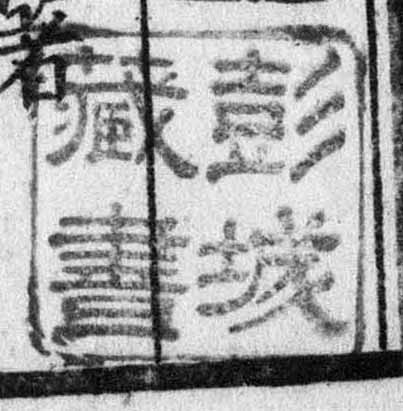 著
彭城
藏書